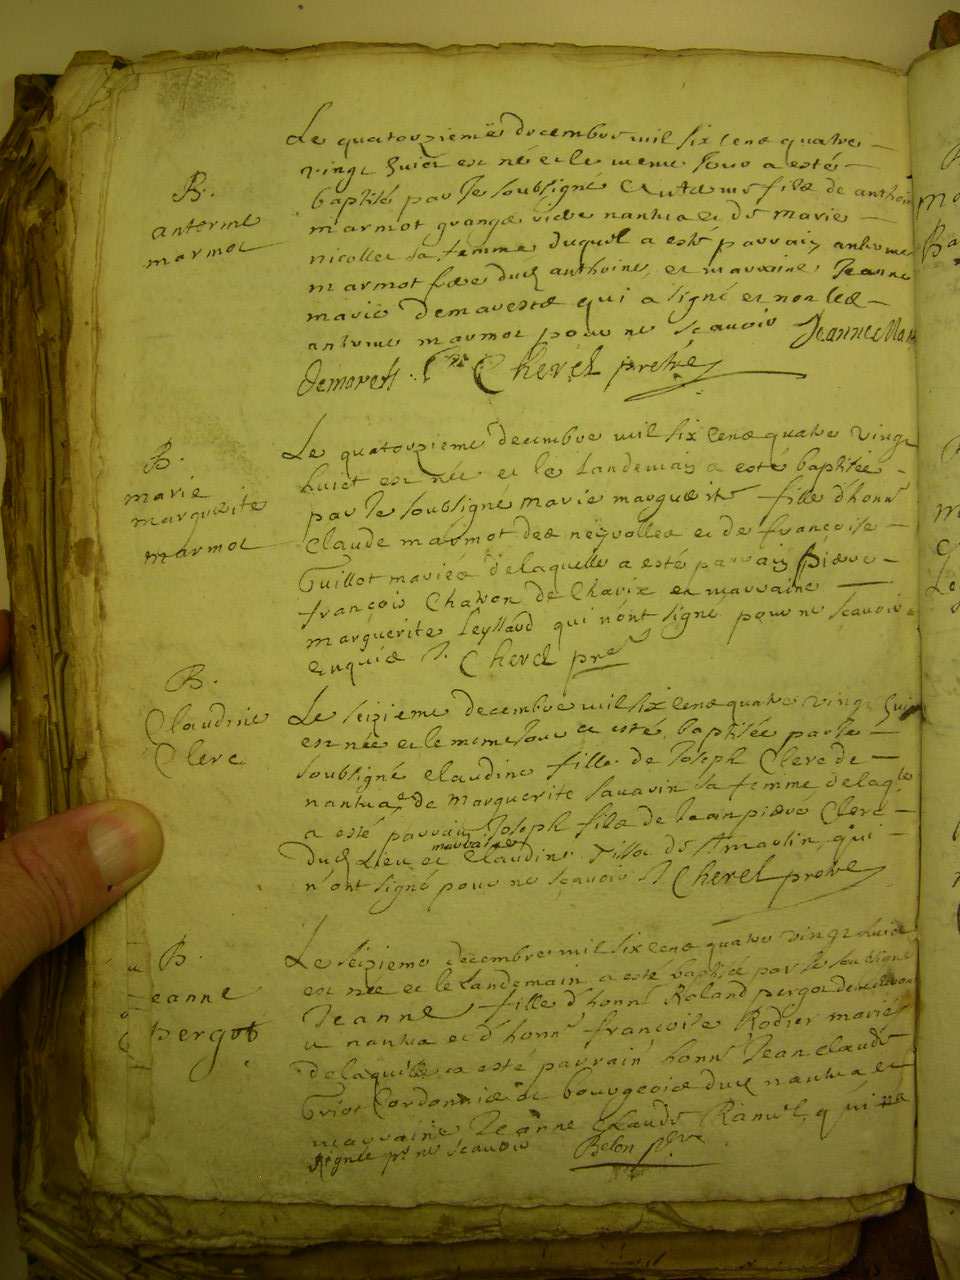 Le quatorzieme decembre mil six cens quatre
vingt huict est né et le meme jour a esté
B.
baptisé par le soubsigné fils de anthoine
anterme
marmot
marmot nantua et de marie
nicollet sa femme duquel a esté parrain anterme
marmot frere dud anthoine, et marraine Jeanne
marie demarests qui a signé et non led
anterme marmot pour ne scavoir Jeanne Mar
demarests Cherel prebtre
B.
Le quatorzieme decembre mil six cens quatre vingt
marie
huict est née et le landemain a esté baptisée
marguerite
par le soubsigné marie marguerite fille d'honn
marmot
Claude marmot des neyrolles et de francoise
Guillot mariés de laquelle a esté parrain pierre
francois Chavon de et marraine
marguerite leyssard qui n'ont signé pour ne scavoir
enquis Cherel pre
B.
Claudine
Le seizieme decembre mil six cens quatre vingt huict
Clerc
est née et le meme jour a esté baptisée par le
soubsigné claudine fille de Joseph Clerc de
nantua et de Marguerite sauarin sa femme de laqle
a esté parrain Joseph fils de Jean pierre Clerc
marraine
dud lieu et Claudine de st martin, qui
n'ont signé pour ne scavoir Cherel prebtre
B.
Le seizieme decembre mil six cens quatre vingt huict
est née et le landemain a esté baptisée par le soubsigné
Jeanne
Jeanne fille d'honn Roland pergot
pergot
nantua et d'honn francoise Rodier mariés
de laquelle a esté parrain honn Jean claude
Griot Cordonnier et bourgeois dud nantua et
marraine Jeanne Claude qui na
signee pr ne scavoir Belon pbre